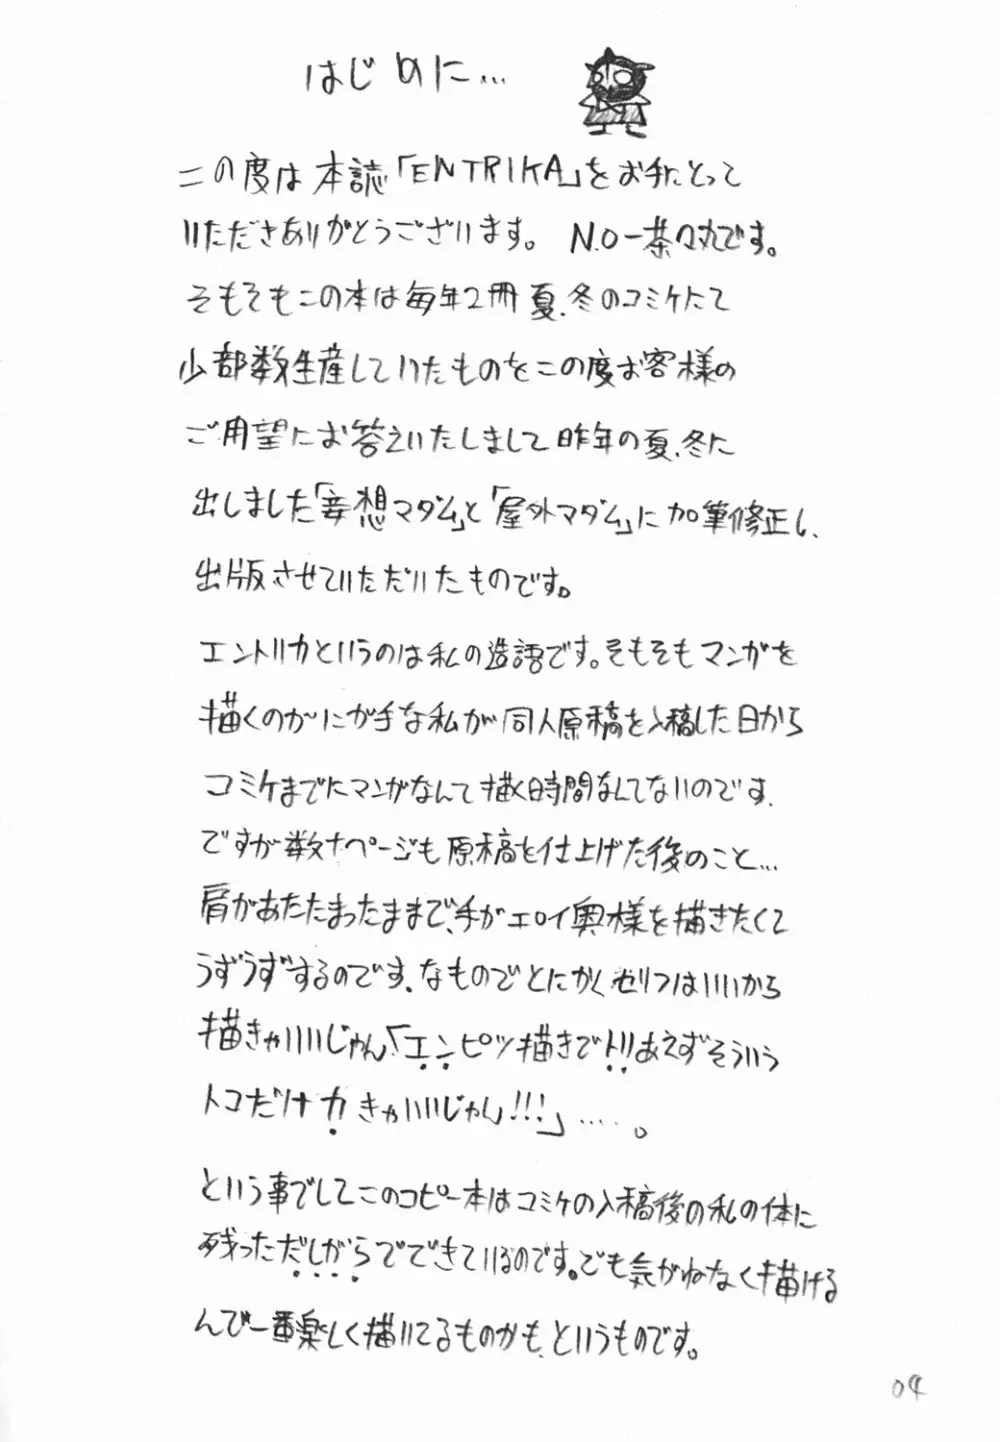 はじめに…
この度は本誌「ENTRIKA」をお手にとって
いただきありがとうございます。 N.O-茶々丸です。
そもそもこの本は毎年2冊夏、冬のコミケにて
少部数生産していたものをこの度お客様の
ご用望にお答えいたしまして昨年の夏、冬に
出しました「妄想マダム」と「屋外マダム」に加筆修正し、
出版させていただいたものです。
エントリカというのは私の造語です。そもそもマンガを
描くのがにが手な私が同人原稿を入稿した日から
コミケまでにマンガなんて描く時間なんてないのです。
ですが数十ページも原稿を仕上げた後のこと…
肩があたたまったままで、手がエロイ奥様を描きたくて
うずうずするのです。なものでとにかくセリフはいいから
描きゃいいじゃん「エンピツ描きでトリあえずそういう
トコだけカきゃいいじゃん!!!」……。
という事でしてこのコピー本はコミケの入稿後の私の体に
残っただしがらでできているのです。でも気がねなく描ける
んで一番楽しく描いてるものかも、というものです。
04